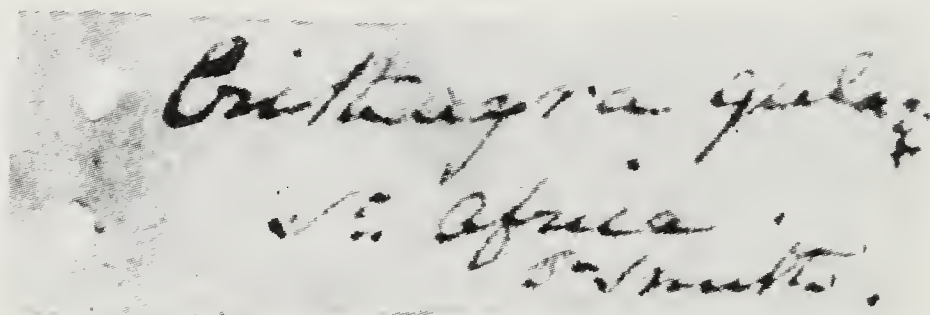 Crithagra
So. Africa.
Dr Smith.